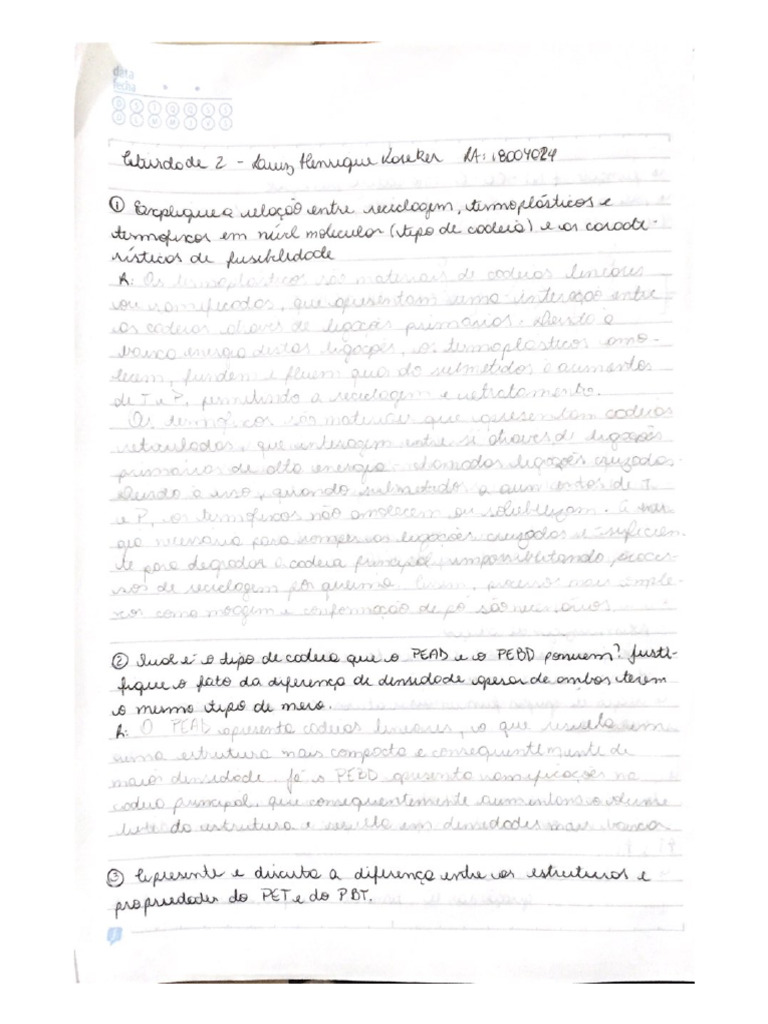 data
fecha
D S T Q Q S S
D L M M J V S
Atividade 2 - Luiz Henrique Koseker RA: 18004024
① Explique a relação entre reciclagem, termoplásticos e
termofixos em nível molecular (tipo de cadeia) e as caracte-
rísticas de fusibilidade
R: Os termoplásticos são materiais de cadeias lineares
ou ramificadas, que apresentam uma interação entre
as cadeias através de ligações primárias. Devido a
baixa energia destas ligações, os termoplásticos amo-
lecem, fundem e fluem quando submetidos a aumentos
de T e P, permitindo a reciclagem e retratamento.
Os termofixos são materiais que apresentam cadeias
reticuladas, que interagem entre si através de ligações
primárias de alta energia chamadas ligações cruzadas.
Devido a isso, quando submetidos a aumentos de T
e P, os termofixos não amolecem ou solubilizam. A ener-
gia necessária para romper as ligações cruzadas é suficien-
te para degradar a cadeia principal impossibilitando proces-
sos de reciclagem por queima. processos mais comple-
xos como moagem e conformação de pó são necessários.
② Qual é o tipo de cadeia que o PEAD e o PEBD possuem? Justi-
fique o fato da diferença de densidade apesar de ambos terem
o mesmo tipo de mero.
R: O PEAD apresenta cadeias lineares, o que resulta em
uma estrutura mais compacta e consequentemente de
maior densidade. Já o PEBD apresenta ramificações na
cadeia principal, que consequentemente aumentam o volume
da estrutura e resulta em densidades mais baixas.
③ Apresente e discuta a diferença entre as estruturas e
propriedades do PET e do PBT.